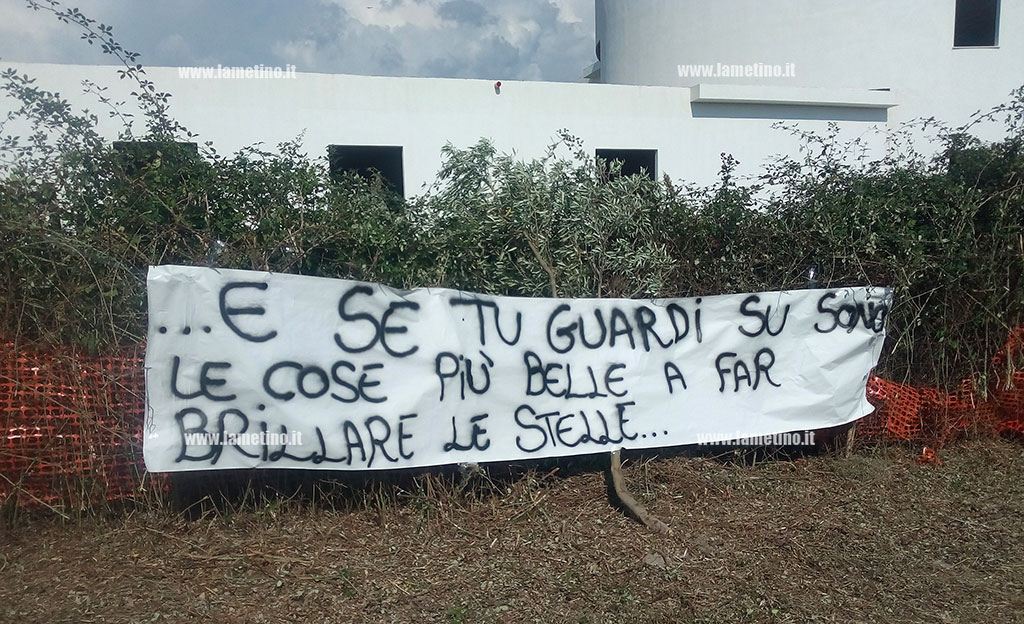 www.lametino.it www.lametino.it
...E SE TU GUARDi SU SONO
LE COSE PIÙ BELLE A FAR
BRiLLARE LE STELLE...
www.lametino.it www.lametino.it